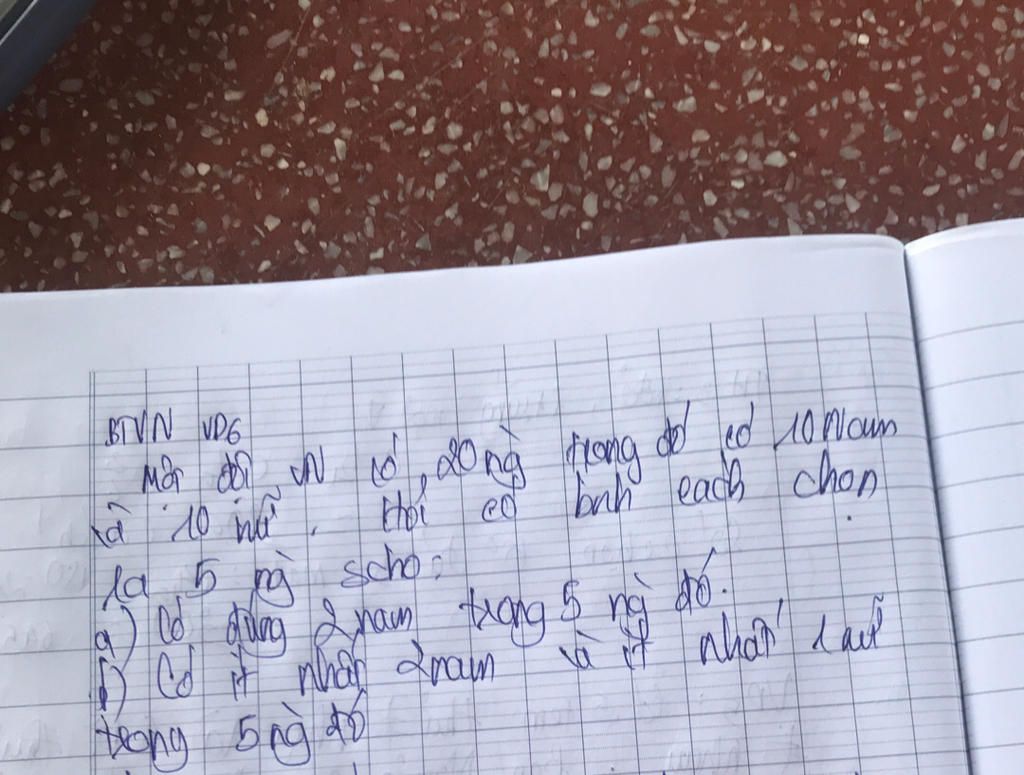 BTVN VD6
Một đội VN có 20 ng̀ trong đó có 10 Nam
và 10 nữ. Hỏi có bnh cách chọn
ra 5 ng̀ scho:
a) Có đúng 2 nam trong 5 ng̀ đó.
b) Có ít nhất 2 nam và ít nhất 1 nữ
trong 5 ng̀ đó